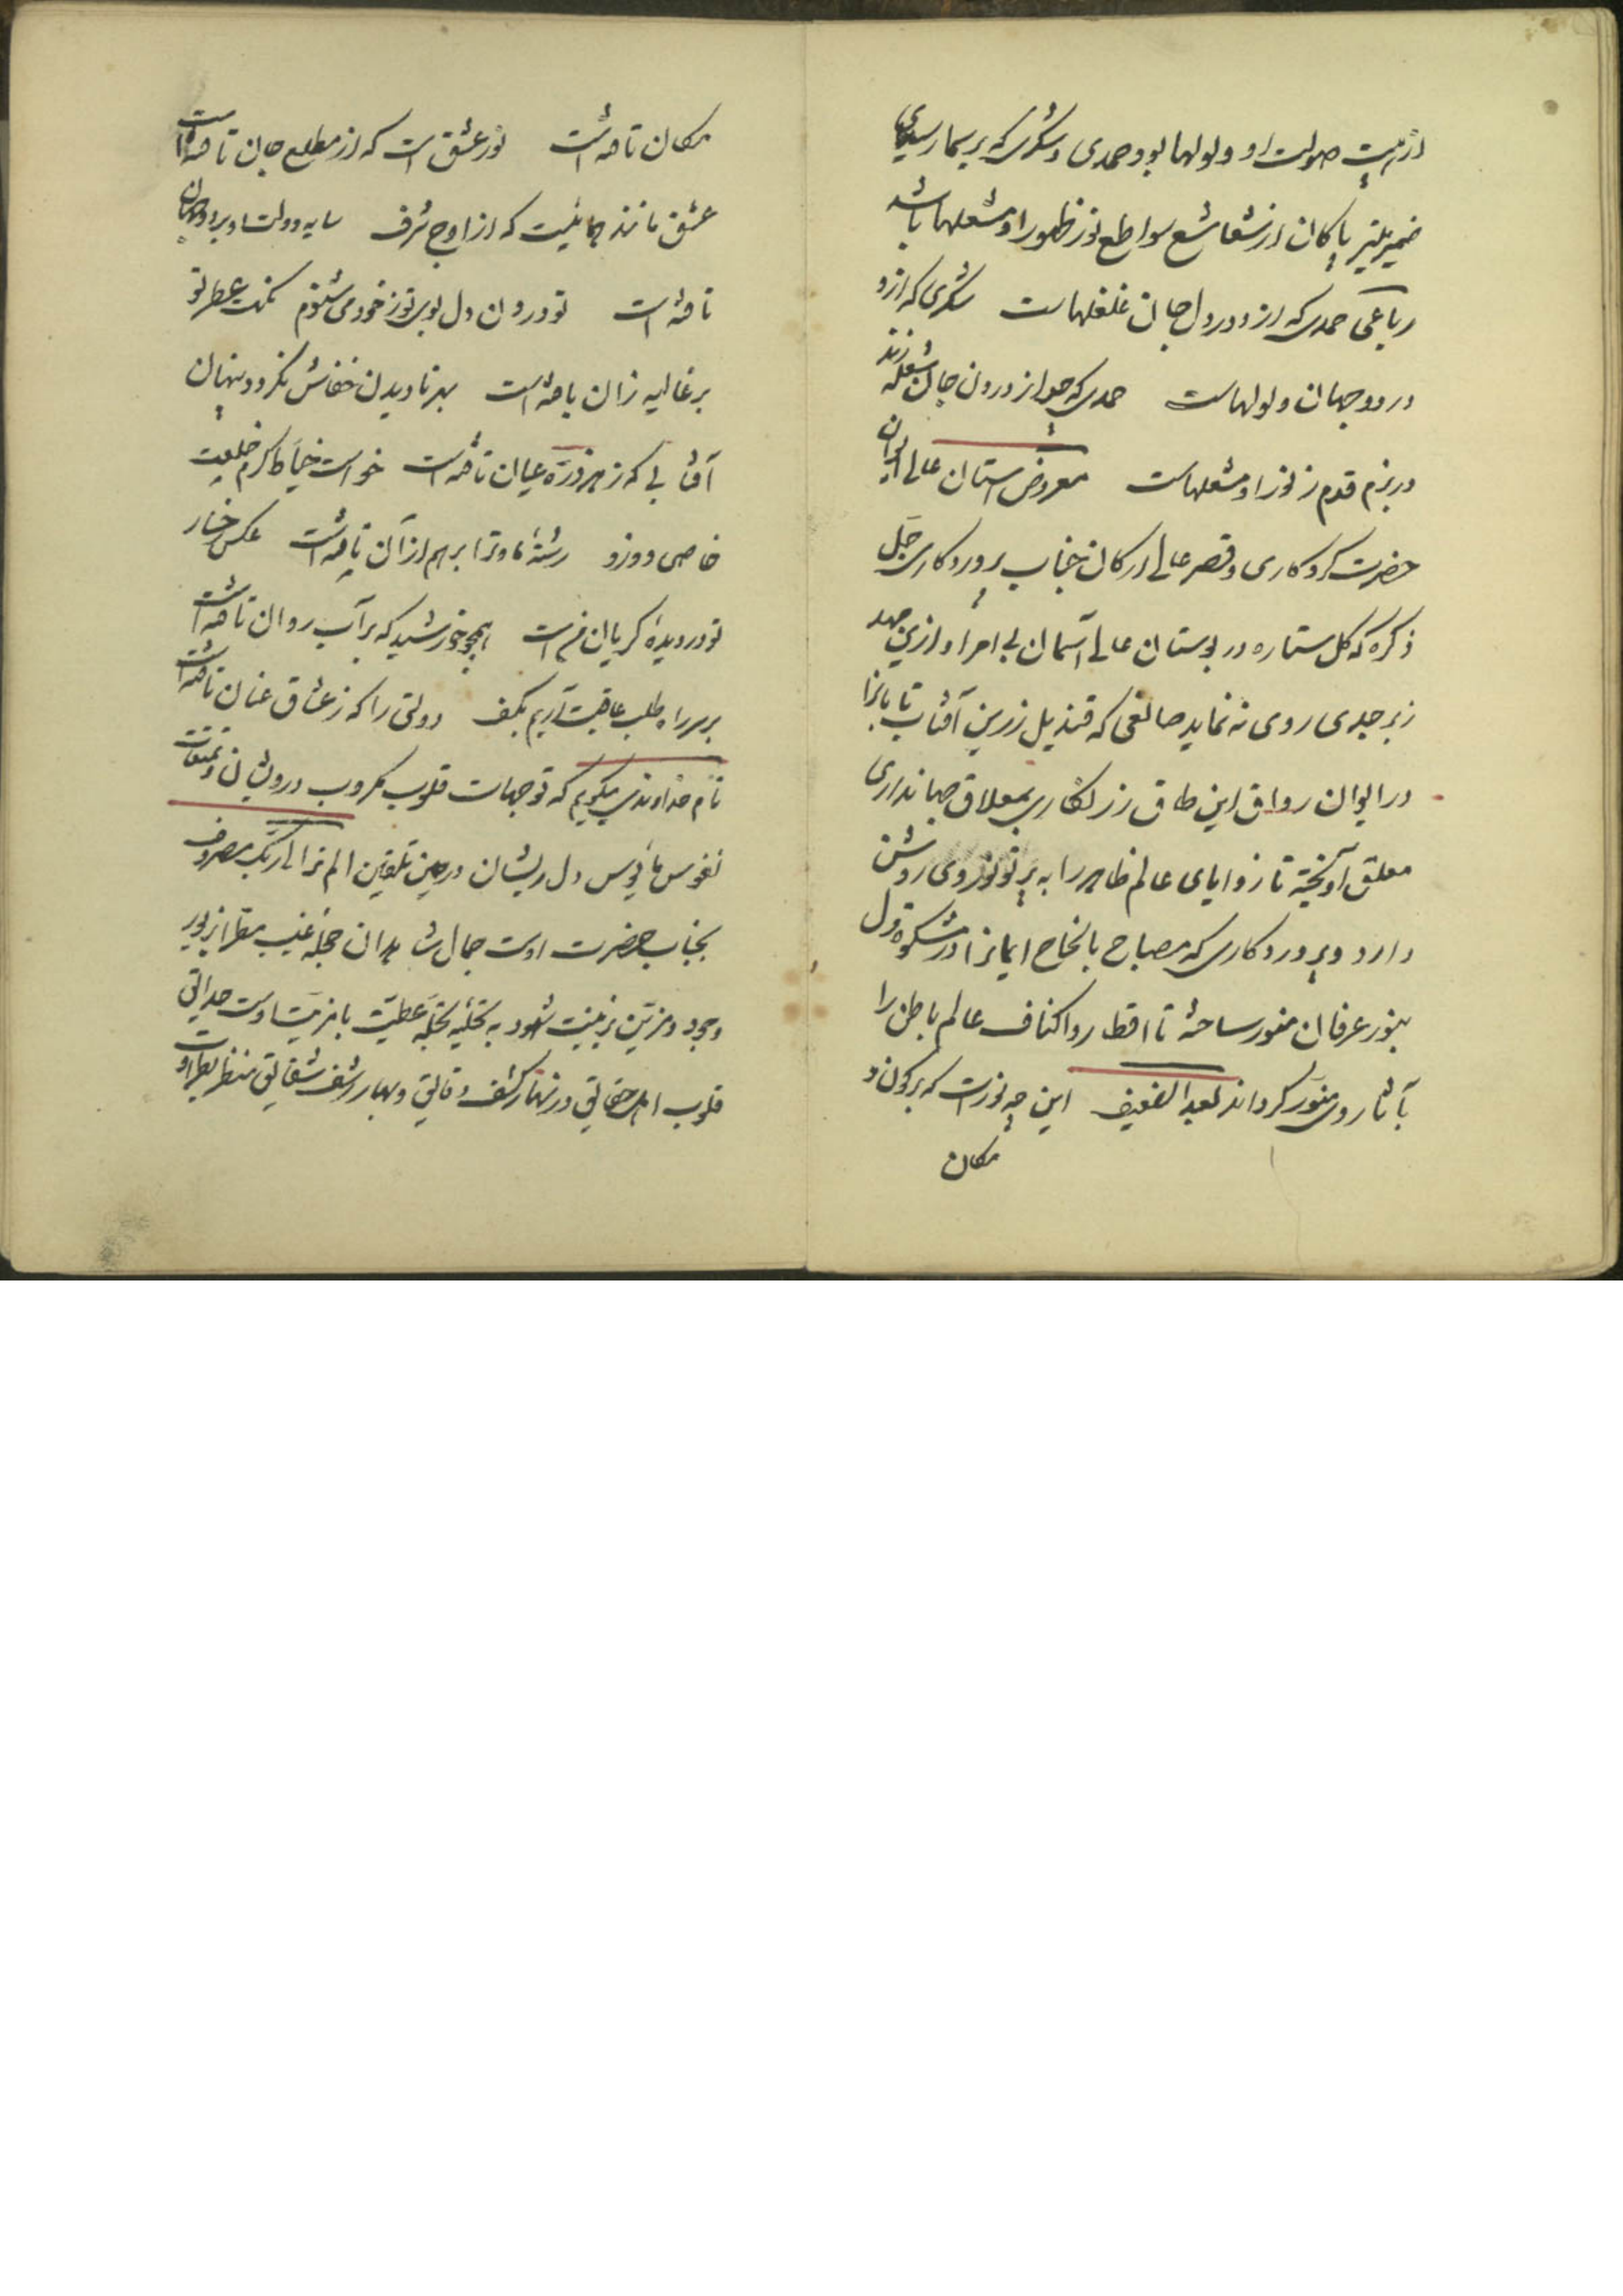 از هیبت صولت او ولولها بود و حمدی و شکری که بر سیمار سیمای
ضمیر پاکان از شعاشع سواطع نور ظهور او مشعلها باشد
رباعی حمدی که ازو در دل و جان غلغلهاست شکری که ازو
در دو جهان ولولهاست حمدی که چو از درون جان شعله زند
در بزم قدم ز نور او مشعلهاست معروض استان عالی ایوان
حضرت کردکاری و قصر عالی ارکان جناب پروردکاری جل
ذکره که کل ستاره در بوستان عالی آسمان بی امر او ازین مهد
زبرجدی روی نه نماید صانعی که قندیل زرین آفتاب تابانرا
در ایوان رواق این طاق زرنکاری بمعلاق جهانداری
معلق آویخته تا زوایای عالم ظاهر را به پرتو نور وی روشن
دارد و پروردکاری که مصباح ایمانرا در مشکوة دل
بنور عرفان منور ساخته تا اقطار و اکناف عالم باطن را
بآثار وی منور کرداند لعبد الضعیف این چه نورست که بر کون و
مکان
مکان تافته است نور عشق است که از مطلع جان تافته است
عشق مانند همائیست که از اوج شرف سایه دولت او بر دو جهان
تافته است تو درون دل و بوی تو ز خود می شنوم نکهت عطر تو
بر غالیه زان یافته است بهر نادیدن خفاش نکردد پنهان
آفتابی که ز هر ذره عیان تافته است خواست خیاط کرم خلعت
خاصی دوزد رشته ما و ترا برهم از آن تافته است عکس رخسار
تو در دیده کریان منست همچو خورشید که بر آب روان تافته است
بر سر راه طلب عاقبت آریم بکف دولتی را که ز عشاق عنان تافته است
نام خداوندی میکویم که توجهات قلوب مکروب درویشان و
نفوس مأیوس دل ریشان در حین تلقین الم تر الی ربک مصروف
بجناب حضرت اوست جمال شاهدان حجله غیب مقرر از بور
وجود و مزین بزینت شهود به تحلیه تجله عطیت با مزیت اوست حدائق
قلوب اهل حقائق در نهار کشف دقائق و بهار رشف شقائق منتظر بطراوت